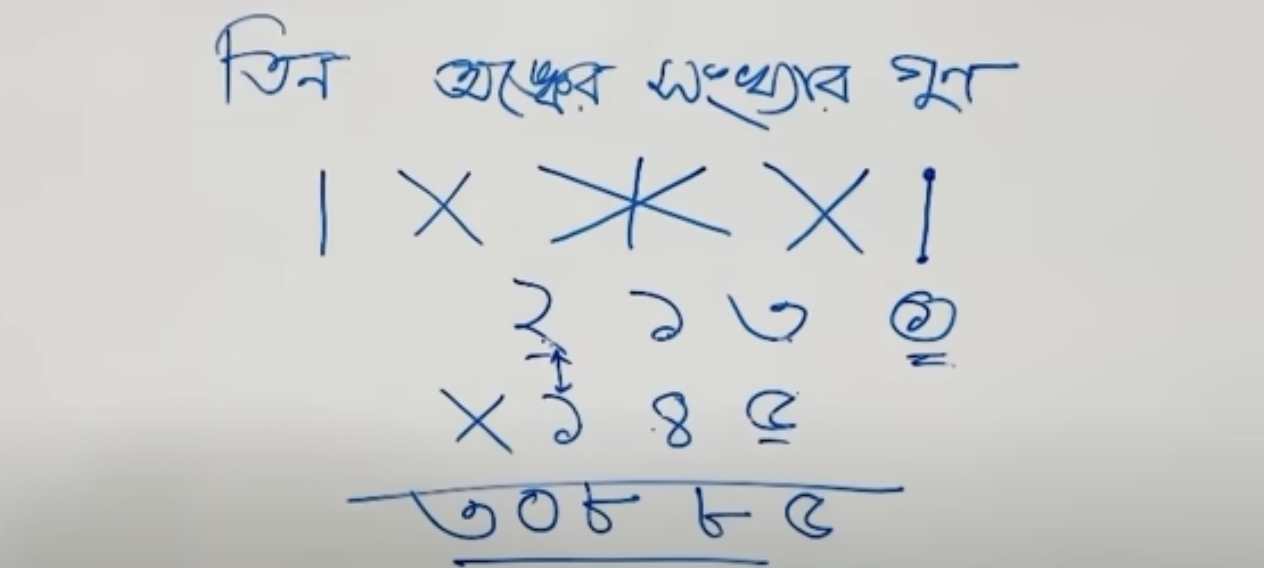 তিন অঙ্কের সংখ্যার গুণ
| × * × |
২ ১ ৩ ১
× ১ ৪ ৫
৩০৮৮৫